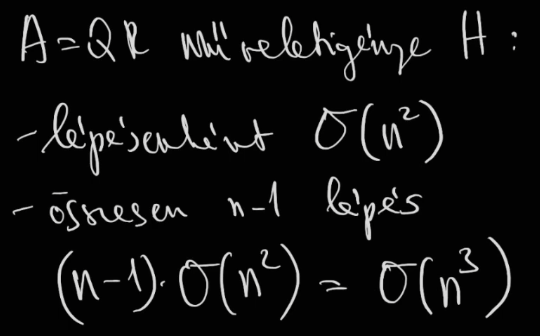 A=QR műveletigénye H:
- lépésenként O(n²)
- összesen n-1 lépés
(n-1)·O(n²) = O(n³)